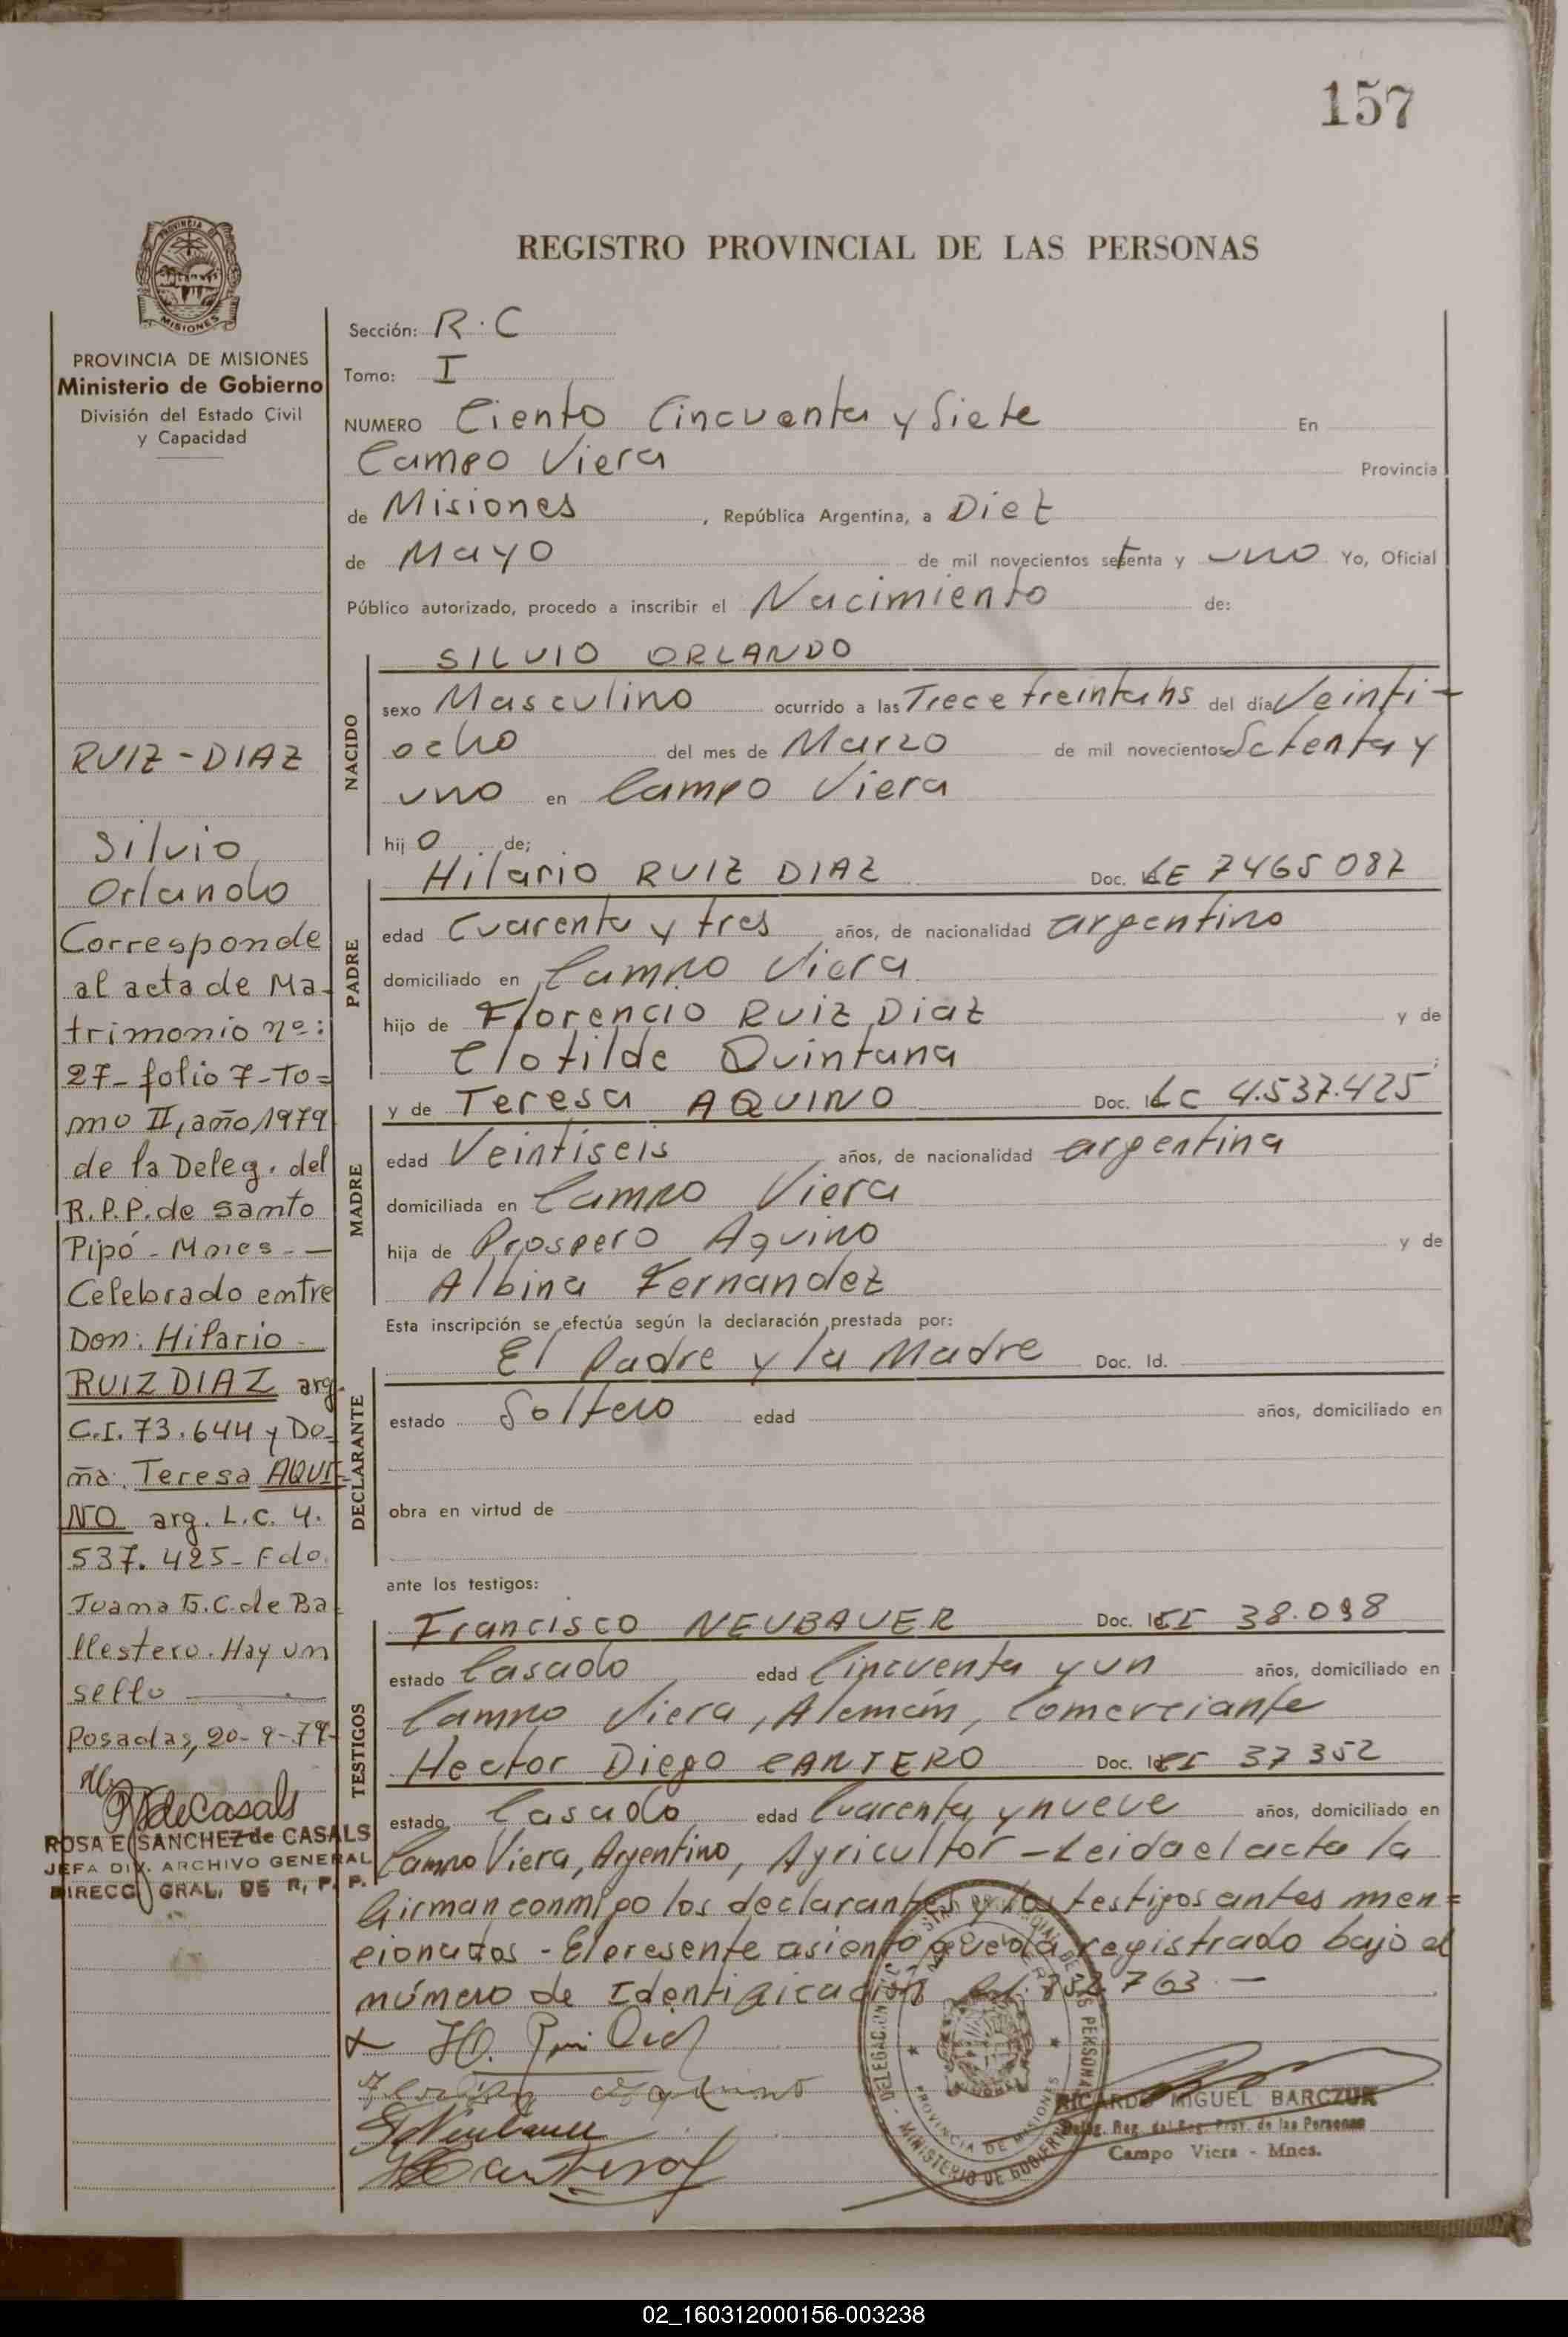 157
REGISTRO PROVINCIAL DE LAS PERSONAS
PROVINCIA DE MISIONES
Ministerio de Gobierno
División del Estado Civil
y Capacidad
RUIZ-DIAZ
Silvio
Orlando
Corresponde
al acta de Ma-
trimonio nº:
27- folio 7-To=
mo II, año 1979
de la Deleg. del
R.P.P. de Santo
Pipó - Mnes. -
Celebrado entre
Don: Hilario
RUIZ DIAZ arg.
C.I. 73.644 y Do-
ña: Teresa AQUI-
NO arg. L.C. 4.
537.425- Fdo.
Juana B. C. de Ba-
llestero. Hay un
sello
Posadas, 20-9-79-
ROSA E. SANCHEZ de CASALS
JEFA DIV. ARCHIVO GENERAL
DIRECC. GRAL. DE R. P. P.
Sección: R.C
Tomo: I
NUMERO Ciento Cincuenta y Siete En
Campo Viera Provincia
de Misiones, República Argentina, a Diez
de Mayo de mil novecientos setenta y uno Yo, Oficial
Público autorizado, procedo a inscribir el Nacimiento de:
NACIDO
SILVIO ORLANDO
sexo Masculino ocurrido a las Trece treinta hs del día Veinti-
ocho del mes de Marzo de mil novecientos Setenta y
uno en Campo Viera
hijo de;
PADRE
Hilario RUIZ DIAZ Doc. LE 7465087
edad Cuarenta y tres años, de nacionalidad argentino
domiciliado en Campo Viera
hijo de Florencio Ruiz Diaz y de
Clotilde Quintana
MADRE
y de Teresa AQUINO Doc. LC 4.537.425
edad Veintiseis años, de nacionalidad argentina
domiciliada en Campo Viera
hija de Prospero Aquino y de
Albina Fernandez
Esta inscripción se efectúa según la declaración prestada por:
DECLARANTE
El Padre y la Madre Doc. Id.
estado Soltero edad años, domiciliado en
obra en virtud de
ante los testigos:
TESTIGOS
Francisco NEUBAUER Doc. CI 38.098
estado Casado edad Cincuenta y un años, domiciliado en
Campo Viera, Alemán, Comerciante
Hector Diego CANTERO Doc. CI 37352
estado Casado edad Cuarenta y nueve años, domiciliado en
Campo Viera, Argentino, Agricultor - Leida el acta la
firman conmigo los declarantes y los testigos antes men=
cionados - El presente asiento queda registrado bajo el
número de Identificación 763.-
RICARDO MIGUEL BARCZUK
Deleg. Reg. del Reg. Prov. de las Personas
Campo Viera - Mnes.
PROVINCIA DE MISIONES
MINISTERIO DE GOBIERNO
02_160312000156-003238